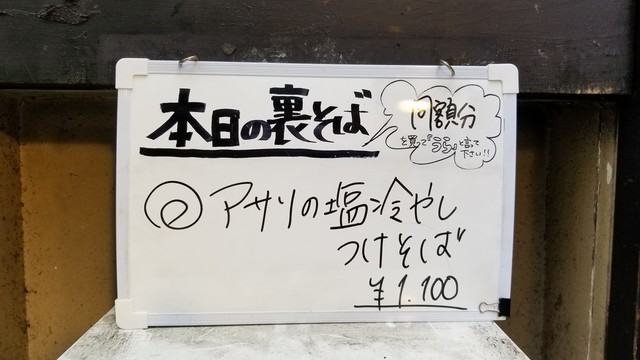 本日の裏そば
同額分
を買って『うら』と言って
下さい!!
アサリの塩冷やし
つけそば
¥1.100